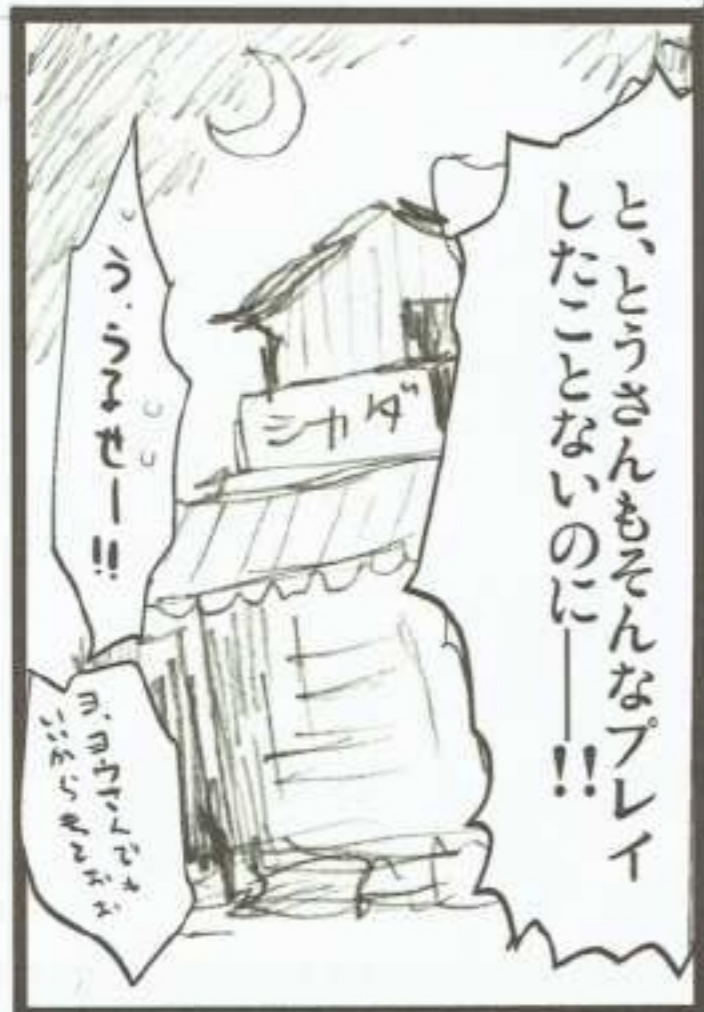 と、とうさんもそんなプレイ
したことないのに――!!
シカダ
う、うるせー!!
ヨ、ヨウさんでも
いいから